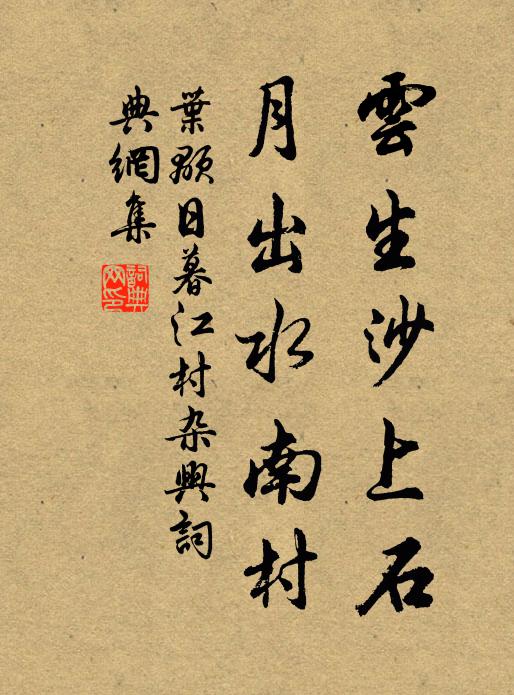 雲生沙上石
月出水南村
葉顒日暮江村杂興詞
典網集
詞典
网印